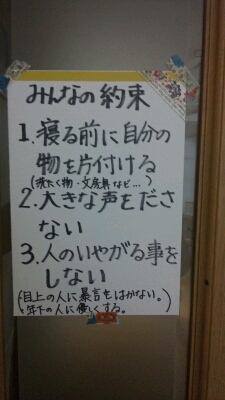 みんなの約束
1.寝る前に自分の
物を片付ける
(洗たく物・文房具など…)
2.大きな声をださ
ない
3.人のいやがる事を
しない
(目上の人に暴言をはかない。
年下の人に優しくする。)